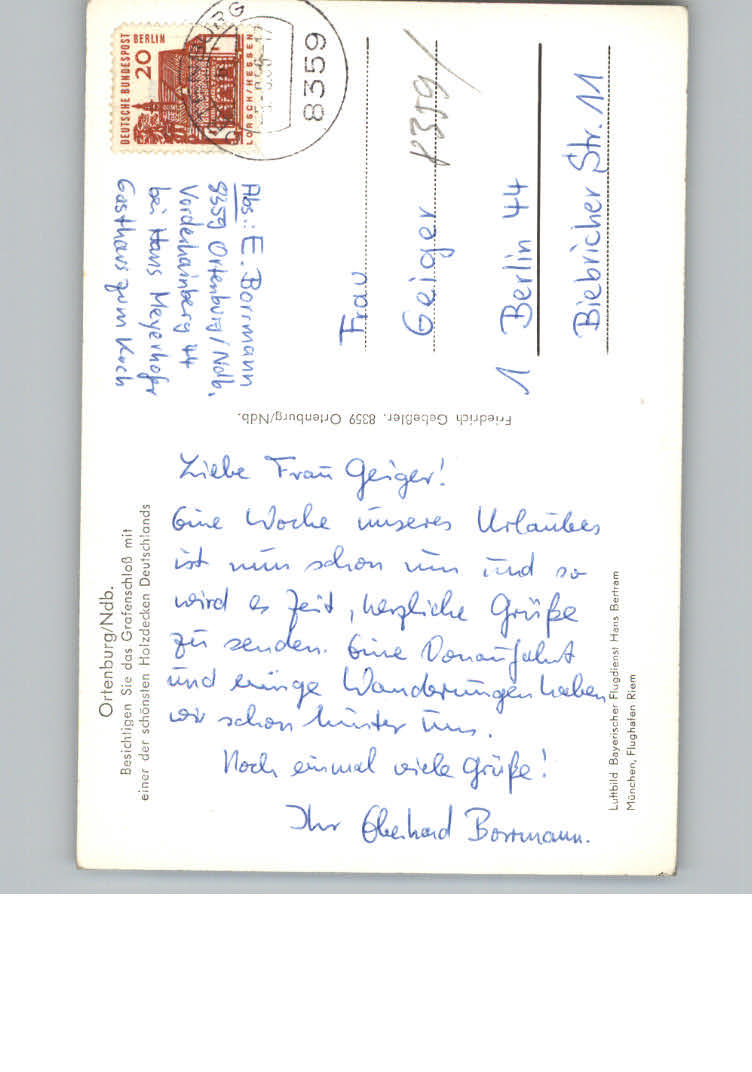 Ortenburg/Ndb.
Besichtigen Sie das Grafenschloß mit
einer der schönsten Holzdecken Deutschlands
Liebe Frau Geiger!
Eine Woche unseres Urlaubes
ist nun schon um und so
wird es Zeit, herzliche Grüße
zu senden. Eine Donaufahrt
und einige Wanderungen haben
wir schon hinter uns.
Noch einmal viele Grüße!
Ihr Eberhard Borrmann.
Luftbild Bayerischer Flugdienst Hans Bertram
München, Flughafen Riem
Friedrich Gebeßler, 8359 Ortenburg/Ndb.
DEUTSCHE BUNDESPOST BERLIN
20
LORSCH/HESSEN
8359
Abs.: E. Borrmann
8359 Ortenburg/Ndb.
Vorderhainberg 44
bei Hans Meyerhofer
Gasthaus zum Koch
Frau
Geiger 8359/
1 Berlin 44
Biebricher Str. 11